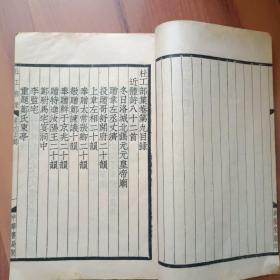 杜工部集卷第九目錄
近體詩八十二首
冬日洛城北謁元元皇帝廟
贈韋左丞丈濟
投贈哥舒開府二十韻
上韋左相二十韻
奉贈太常張卿二十韻
敬贈鄭諫議十韻
奉贈鮮于京兆二十韻
贈特進汝陽王二十韻
鄭駙馬宅宴洞中
李監宅
重題鄭氏東亭